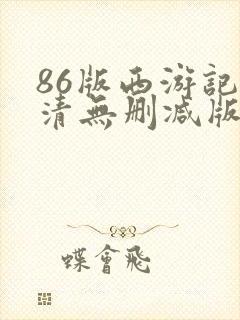 86版西游記
清無删減版
蝶會飛